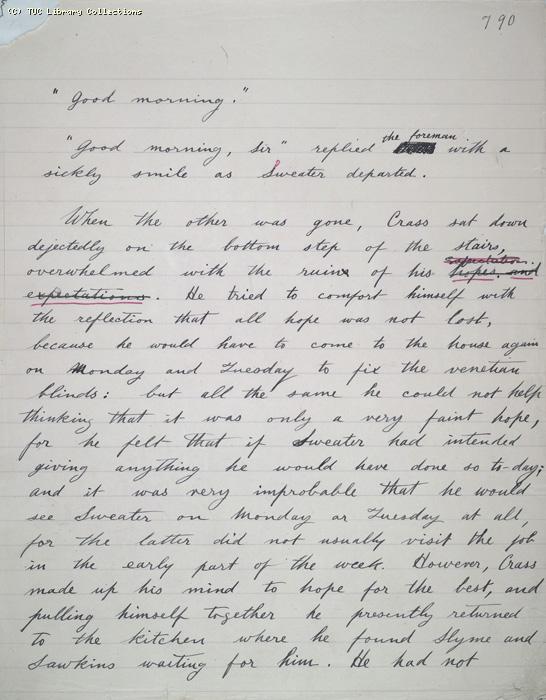 (C) TUC Library Collections
790
"Good morning."
the foreman
"Good morning, sir" replied with a
sickly smile as Sweater departed.
When the other was gone, Crass sat down
dejectedly on the bottom step of the stairs,
expectation.
overwhelmed with the ruin of his hopes, and
expectations. He tried to comfort himself with
the reflection that all hope was not lost,
because he would have to come to the house again
on Monday and Tuesday to fix the venetian
blinds: but all the same he could not help
thinking that it was only a very faint hope,
for he felt that if Sweater had intended
giving anything he would have done so to-day;
and it was very improbable that he would
see Sweater on Monday or Tuesday at all,
for the latter did not usually visit the job
in the early part of the week. However, Crass
made up his mind to hope for the best, and
pulling himself together he presently returned
to the kitchen where he found Slyme and
Sawkins waiting for him. He had not